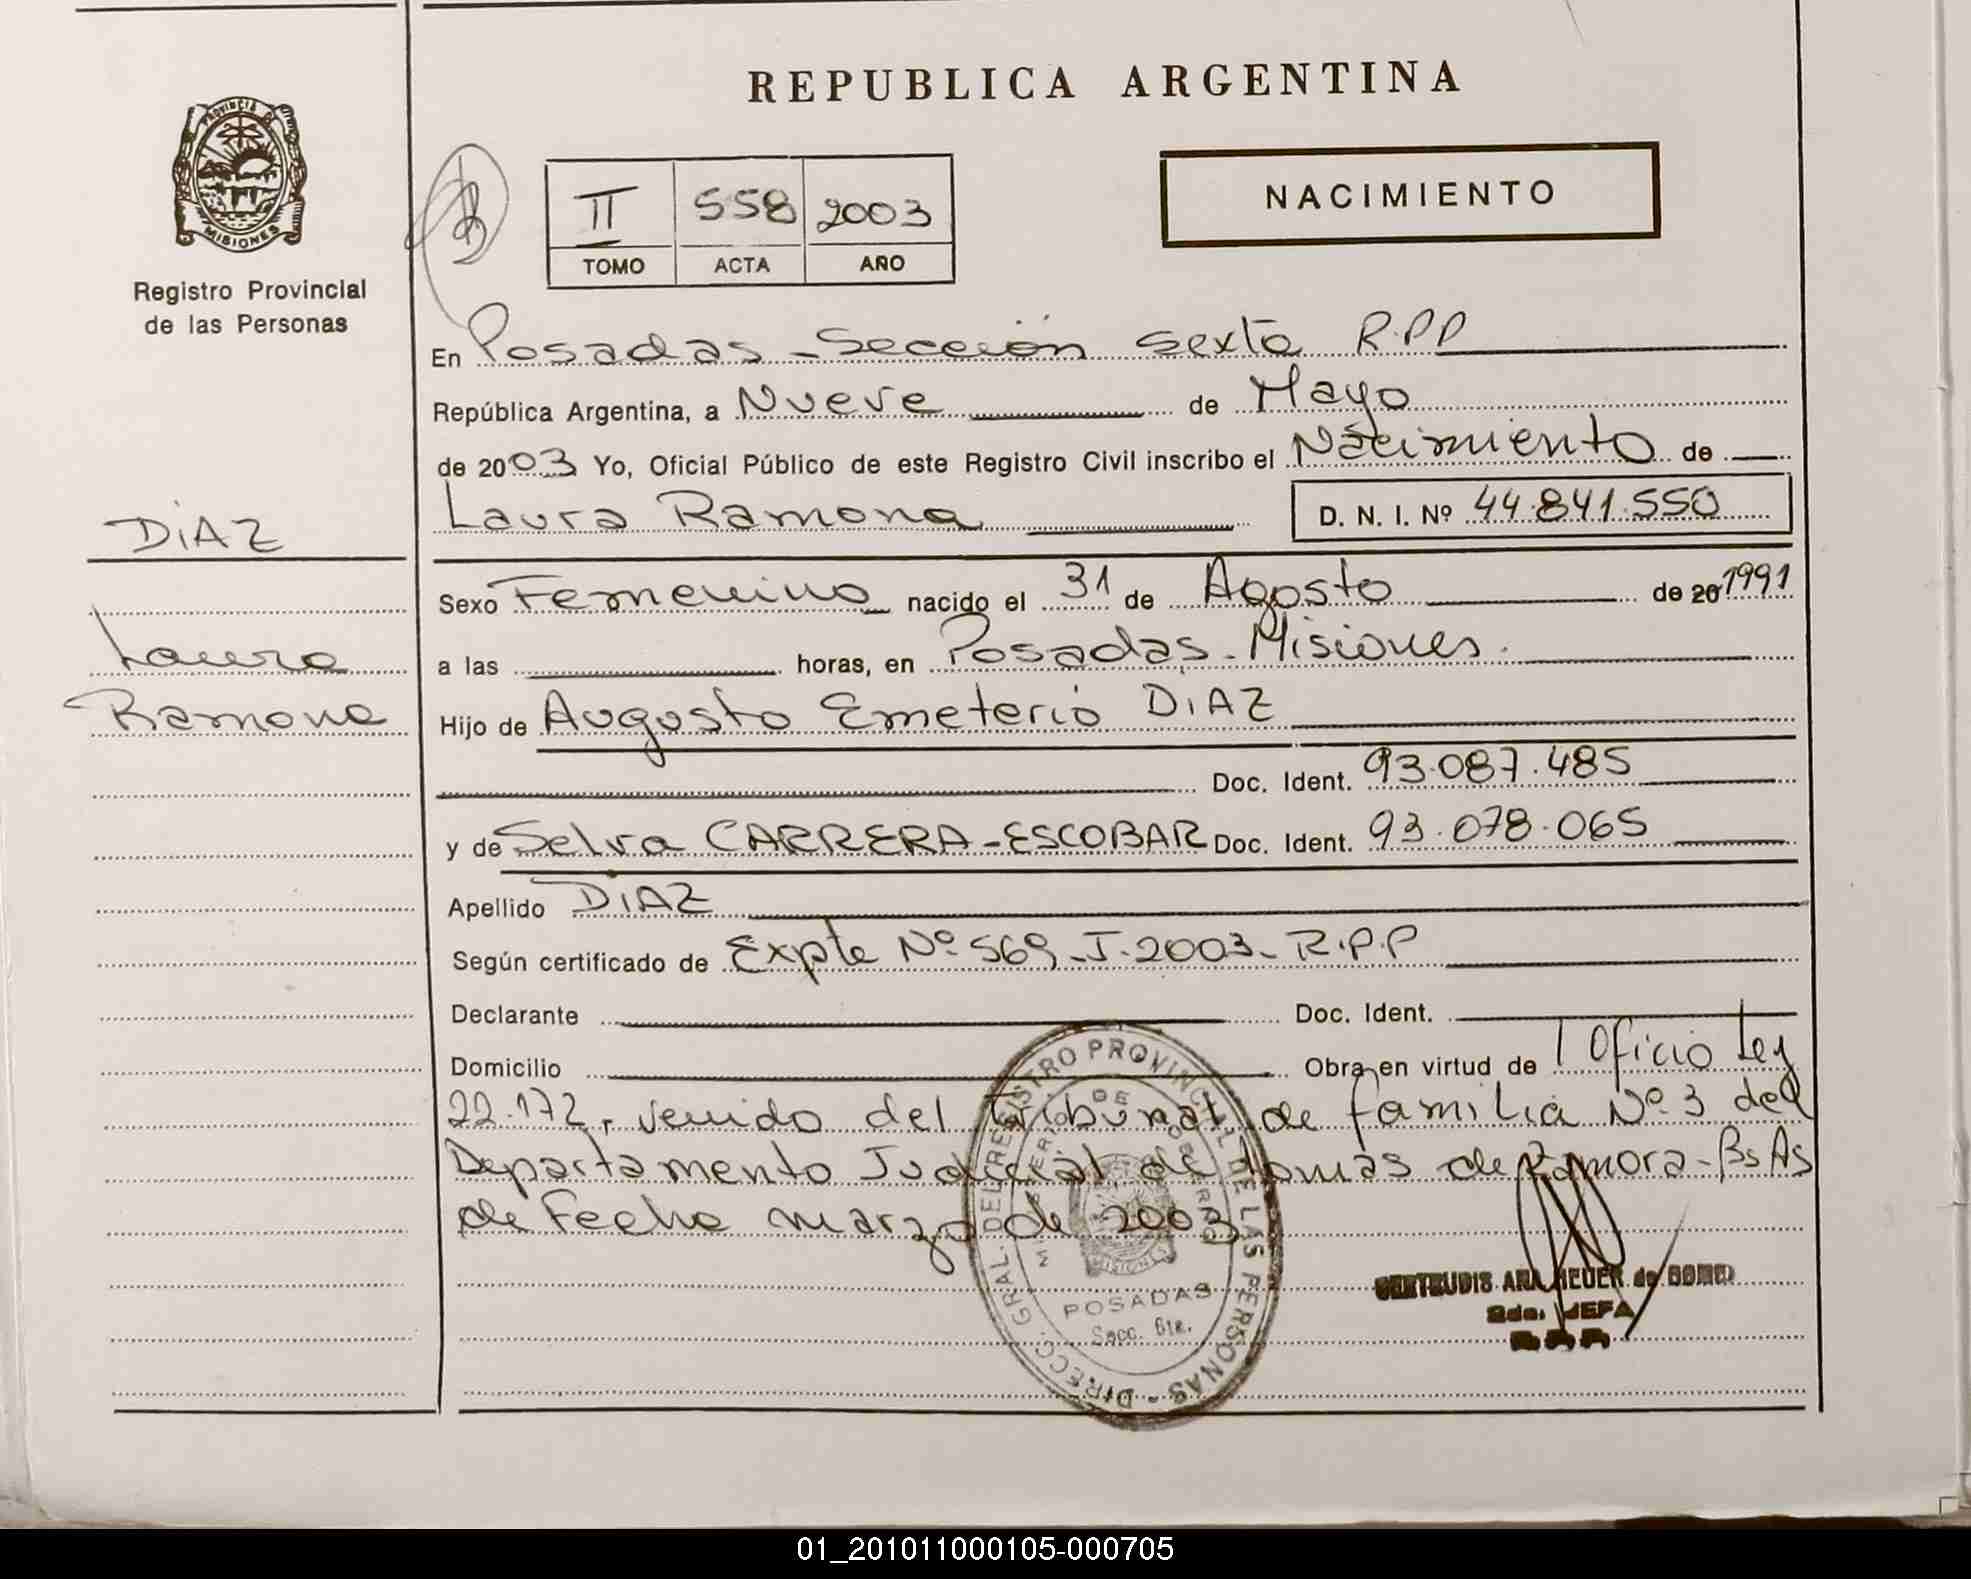 REPUBLICA ARGENTINA
PROVINCIA DE
MISIONES
Registro Provincial
de las Personas
II 558 2003
TOMO ACTA AÑO
NACIMIENTO
En Posadas - Sección Sexta R.P.P
República Argentina, a Nueve de Mayo
de 2003 Yo, Oficial Público de este Registro Civil inscribo el Nacimiento de
Laura Ramona D. N. I. Nº 44.841.550
DiAZ
Laura
Ramona
Sexo Femenino nacido el 31 de Agosto de 20 1991
a las horas, en Posadas - Misiones.
Hijo de Augusto Emeterio DiAZ
Doc. Ident. 93.087.485
y de Selva CARRERA-ESCOBAR Doc. Ident. 93.078.065
Apellido DiAZ
Según certificado de Expte Nº 569-J-2003-R.P.P
Declarante Doc. Ident.
Domicilio Obra en virtud de Oficio Ley
22.172, venido del Tribunal de familia Nº 3 del
Departamento Judicial de Lomas de Zamora - Bs As
de Fecha marzo de 2003
DIRECC. GRAL. DEL REGISTRO PROVINCIAL DE LAS PERSONAS
MINISTERIO DE GOBIERNO
MISIONES
POSADAS
Secc. 6ta.
GERTRUDIS ANA de
2da. JEFA
01_201011000105-000705